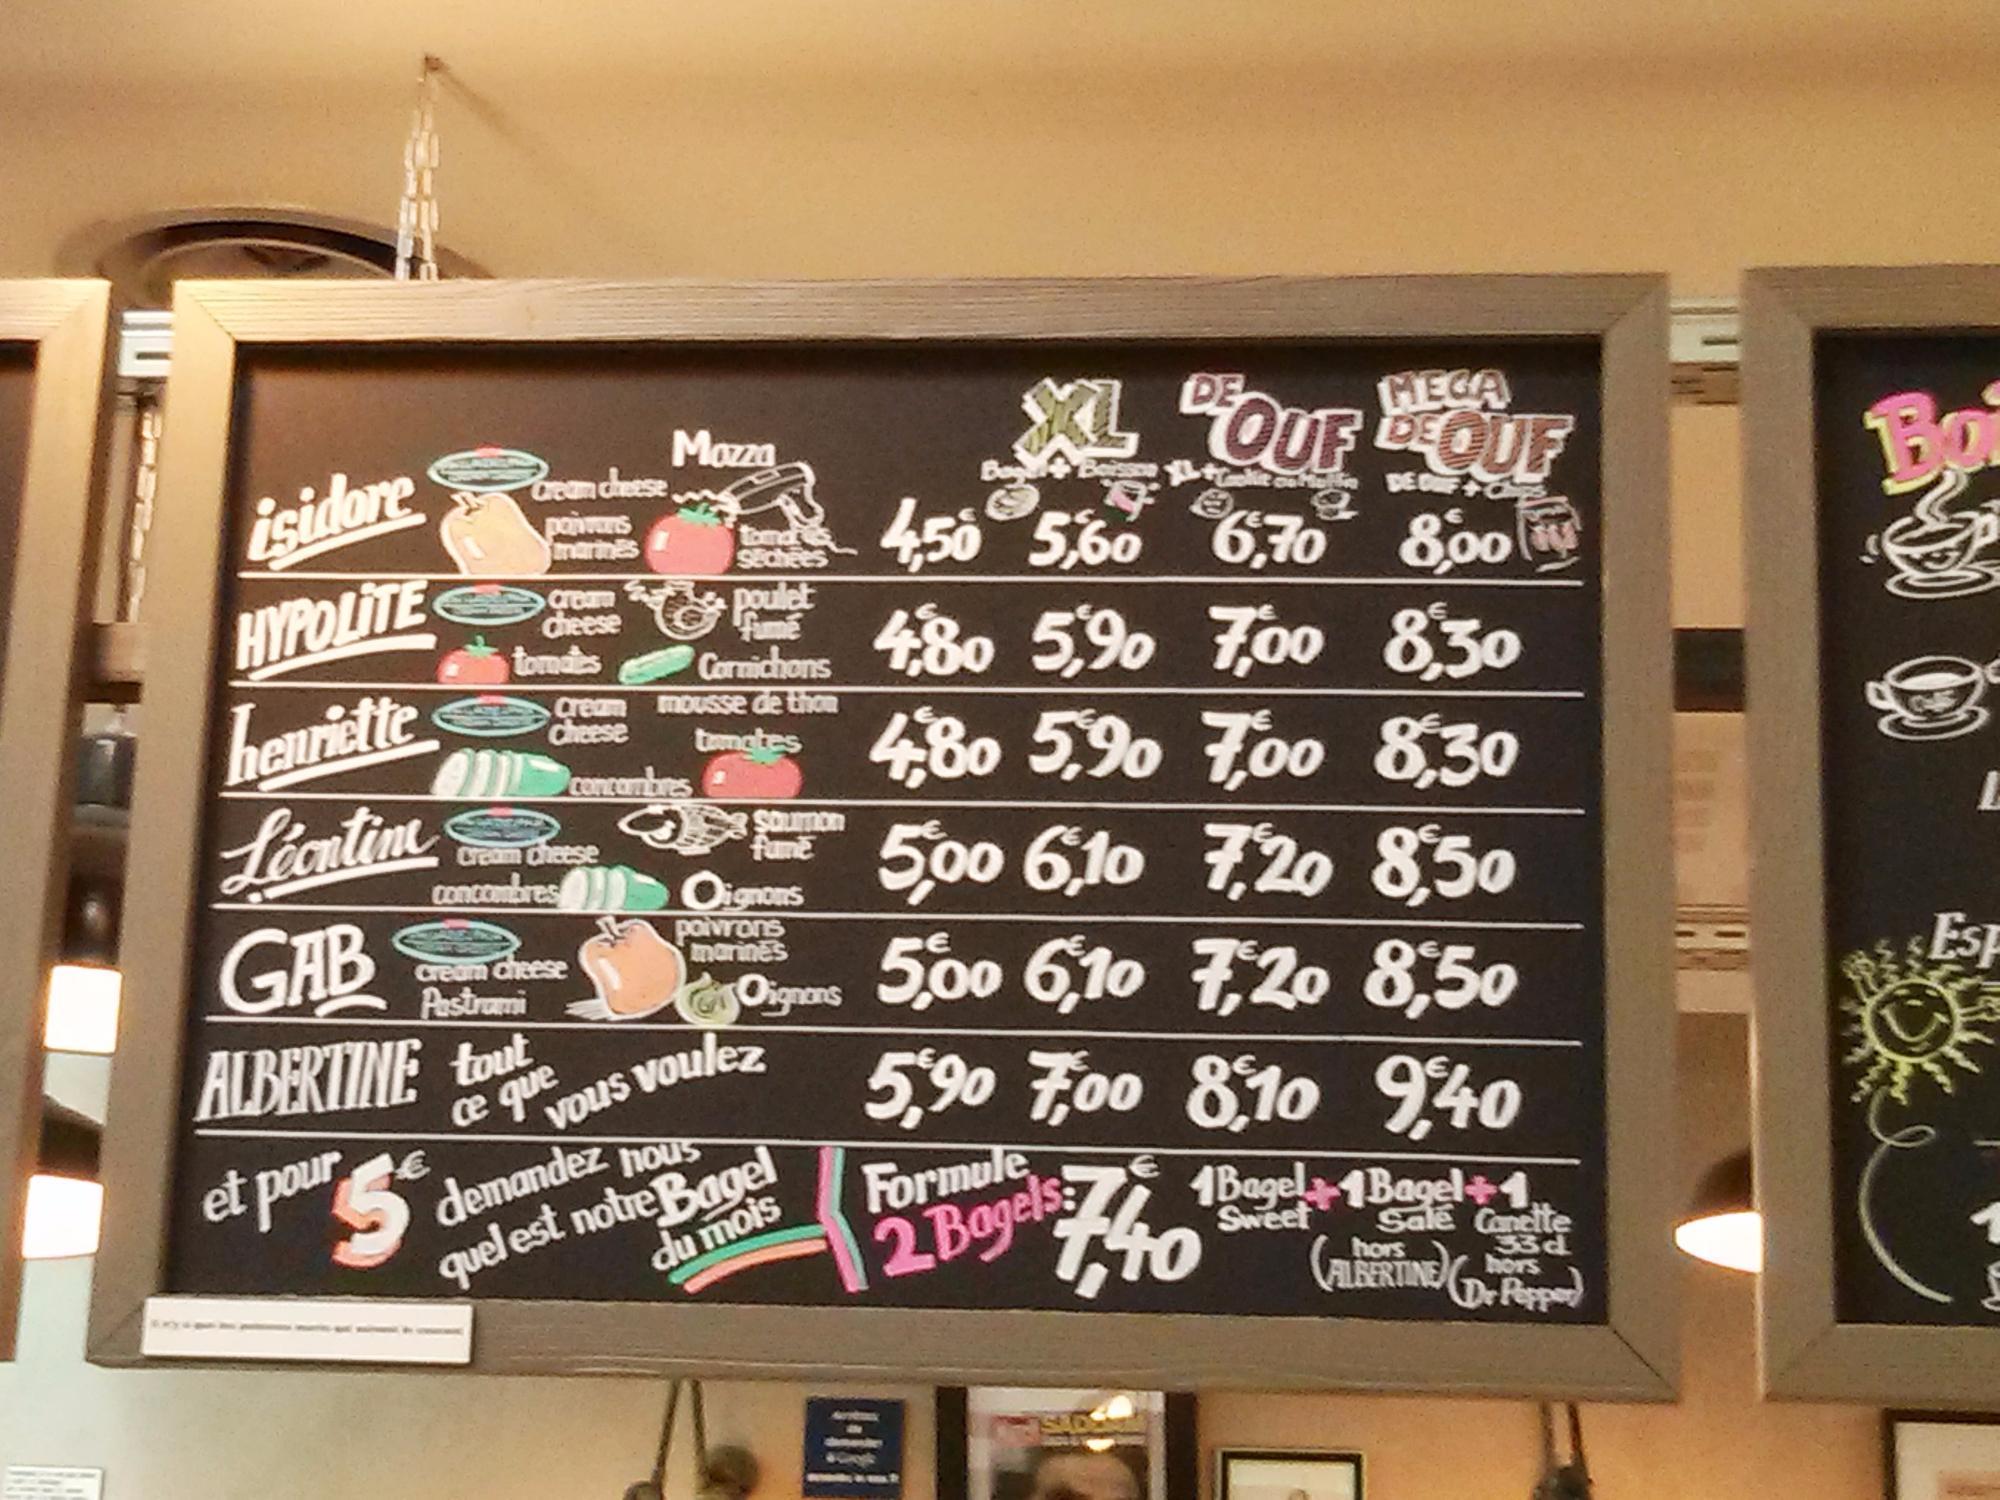 XL
DE OUF
MEGA DE OUF
Bagel + Boisson
XL + Cookie ou Muffin
DE OUF + Chips
isidore cream cheese Mozza
poivrons marinés tomates séchées
4,50€ 5,60€ 6,70€ 8,00€
HYPOLiTE cream cheese poulet fumé
tomates Cornichons
4,80€ 5,90€ 7,00€ 8,30€
henriette cream cheese mousse de thon
concombres tomates
4,80€ 5,90€ 7,00€ 8,30€
Léontine cream cheese saumon fumé
concombres Oignons
5,00€ 6,10€ 7,20€ 8,50€
GAB cream cheese poivrons marinés
Pastrami Oignons
5,00€ 6,10€ 7,20€ 8,50€
ALBERTINE tout ce que vous voulez
5,90€ 7,00€ 8,10€ 9,40€
et pour 5€ demandez nous
quel est notre Bagel
du mois
Formule
2 Bagels: 7,40€
1 Bagel Sweet + 1 Bagel Salé + 1 Canette 33cl
(hors ALBERTINE) (hors Dr Pepper)
Boi
Esp